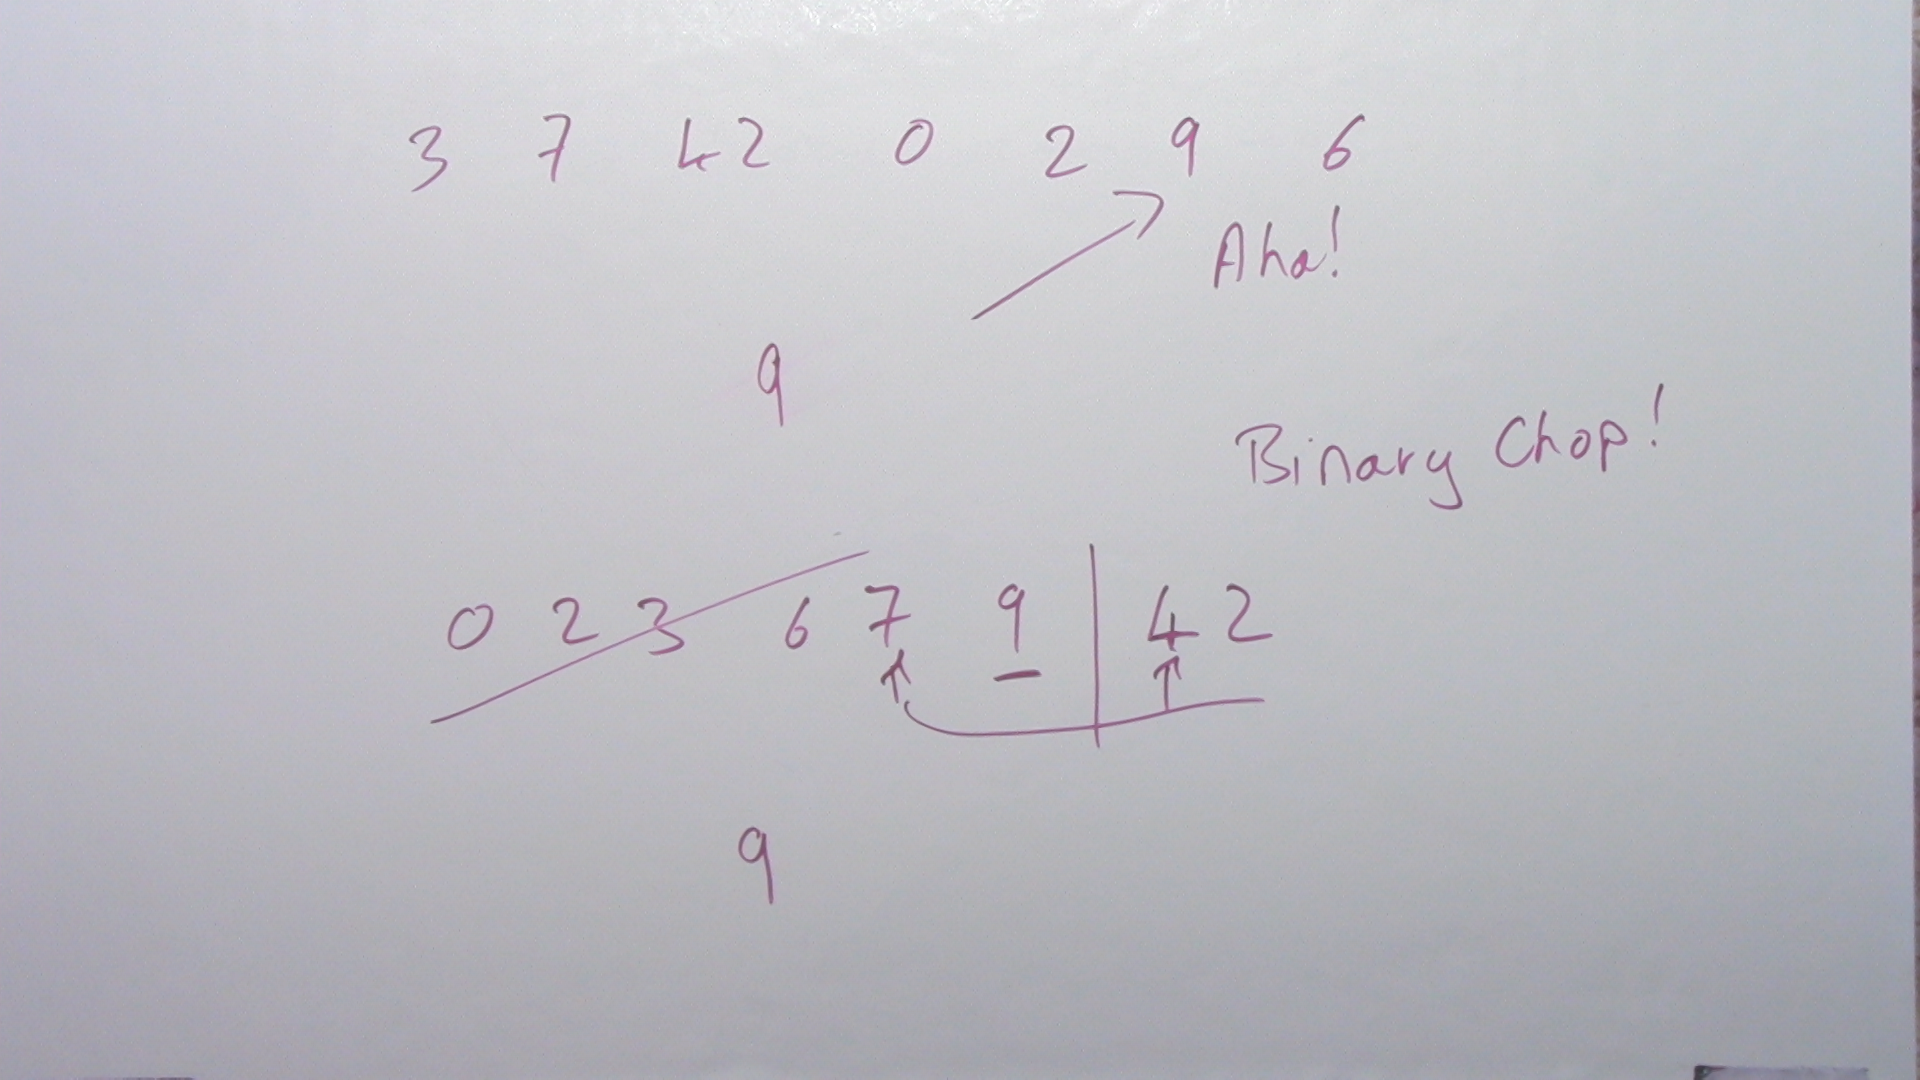 3 7 42 0 2 9 6
Aha!
9
Binary Chop!
0 2 3 6 7 9 42
9